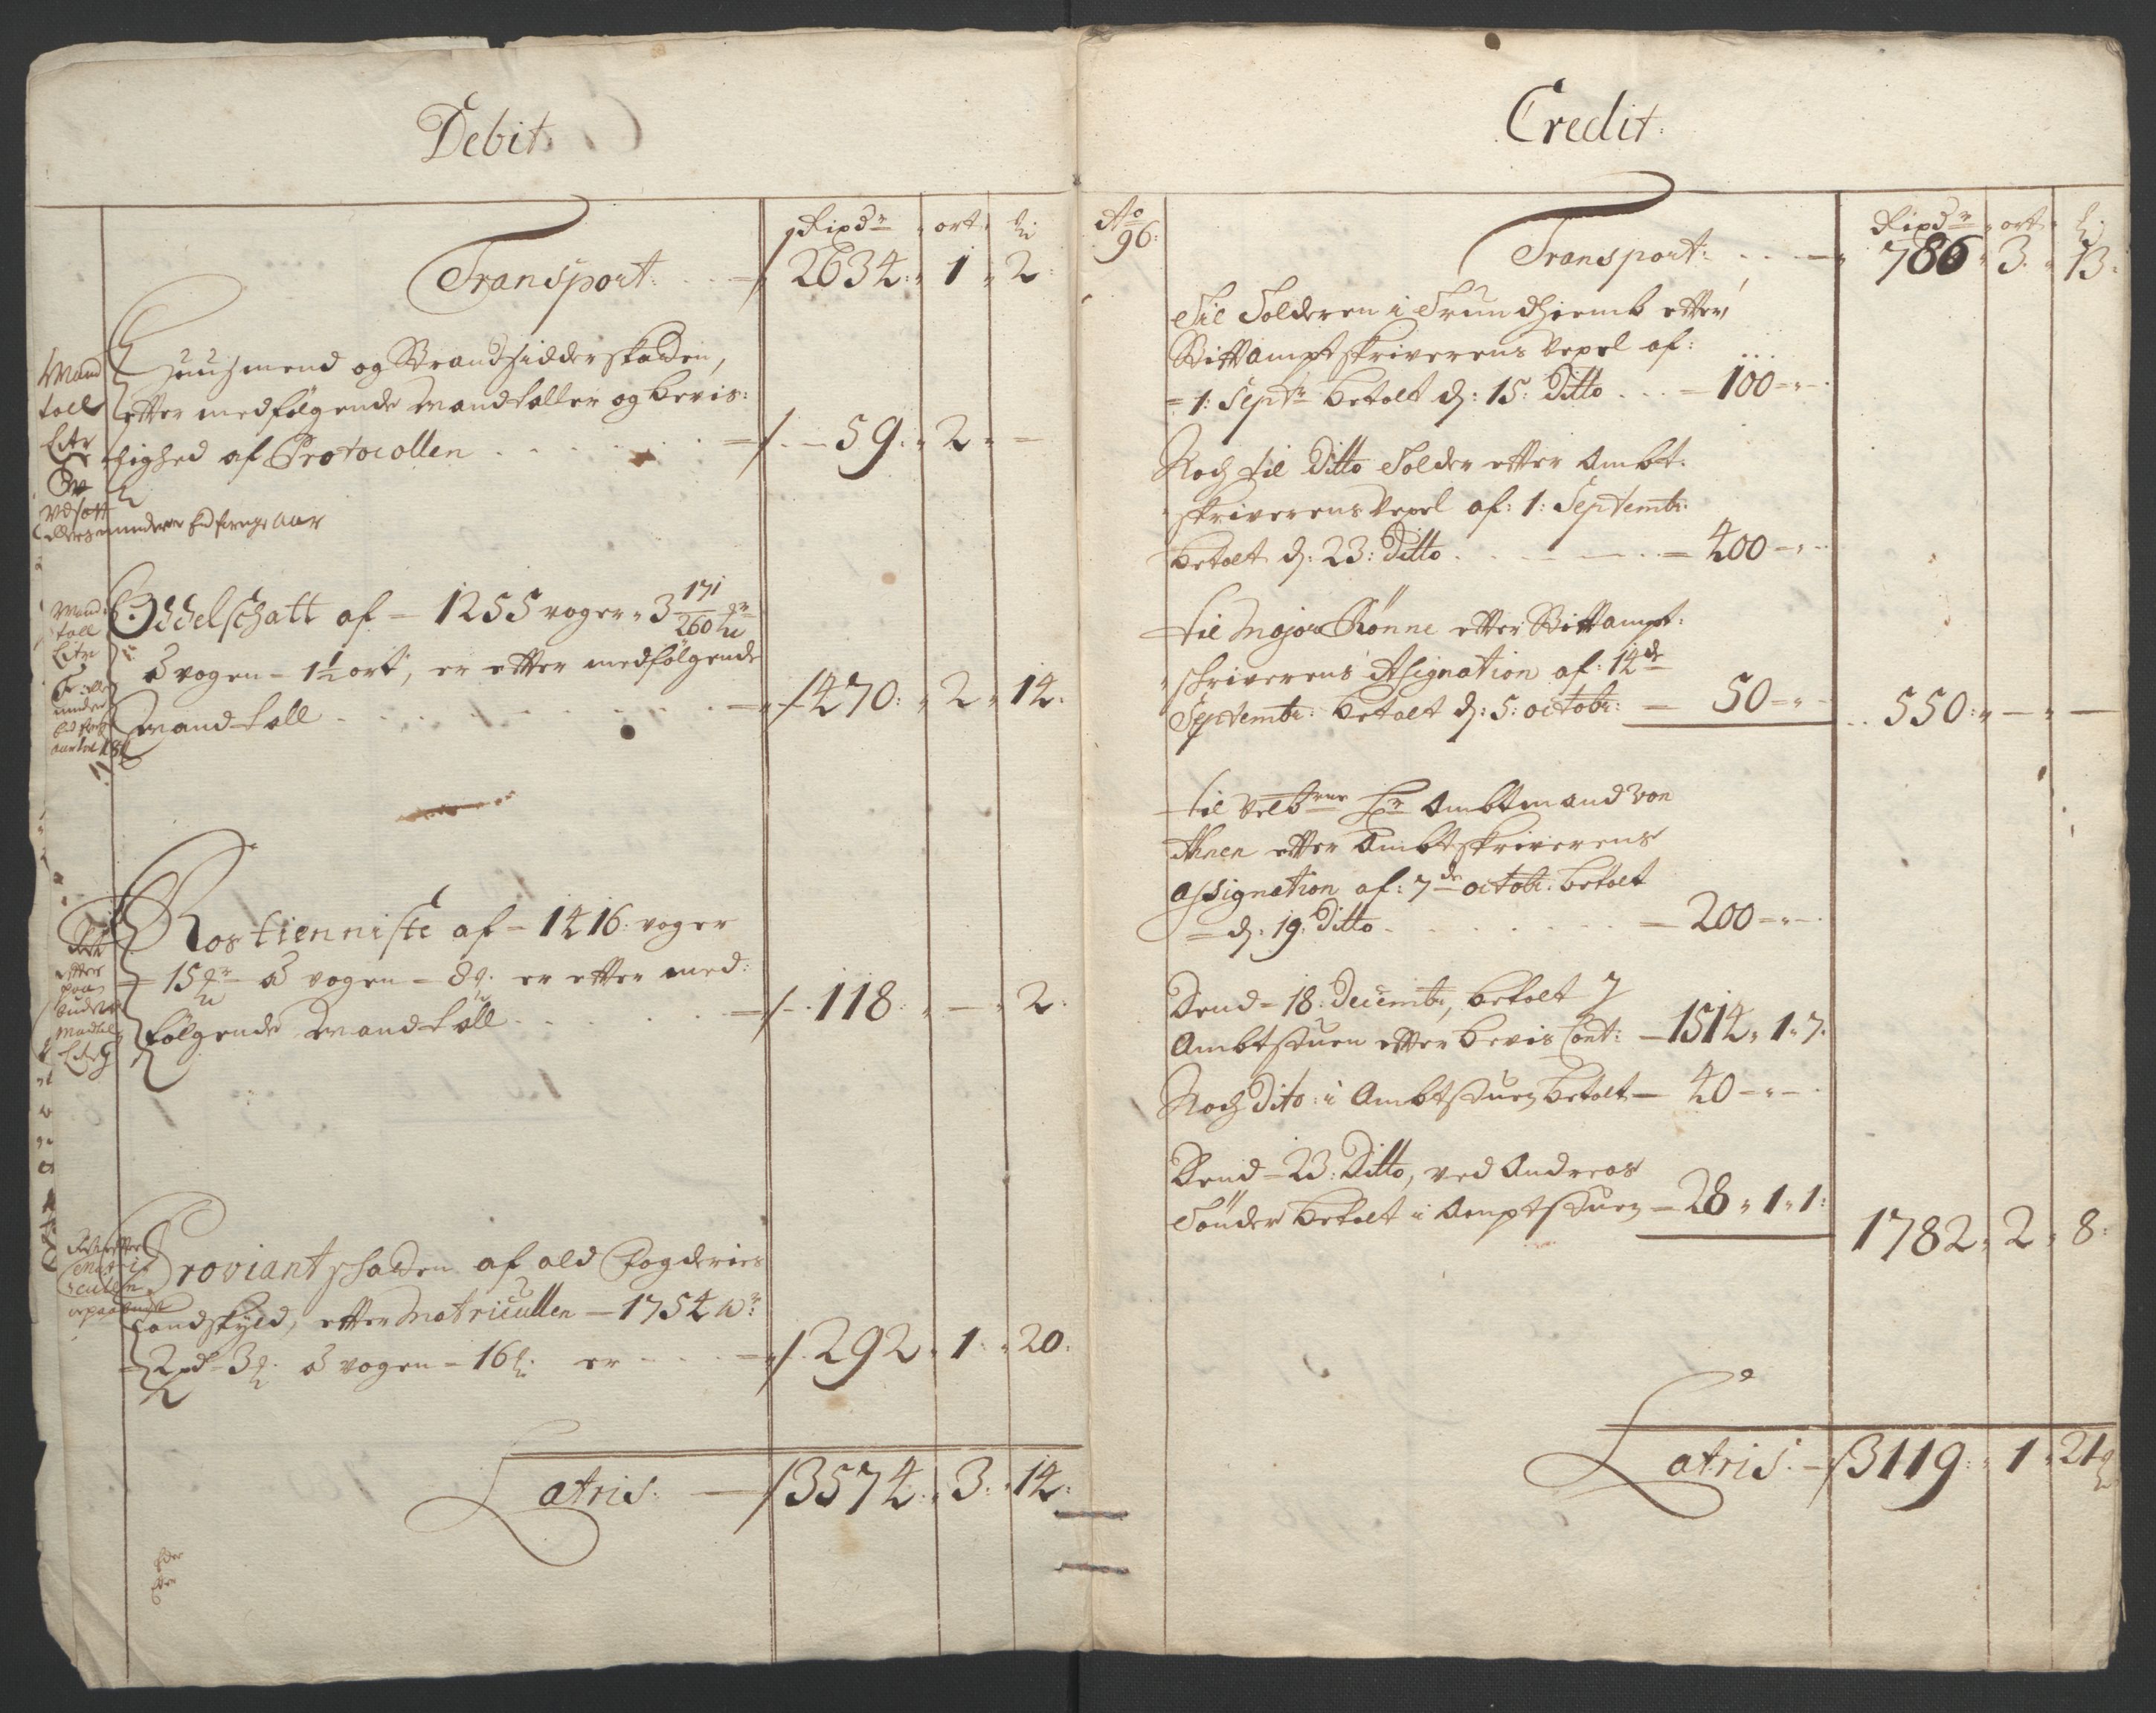 Debit
Rixdr ort ß
Transport: 2634: 1 2:
Huusmend og Strandsidder skatten,
efter medfølgende Mandtaller og bevis:
lighed af Protocollen 59: 2 -
Mand
tall
Litr
Vdsatt
Oddelschatt af - 1255 voger 3 171/260
â vogen - 1½ ort, er efter medfølgende
Mandtall 470: 2 14:
Mand
tall
Litr
Rostienniste af - 1416: voger
15 â vogen - 8 ß er efter med:
følgende Mandtall 118: - 2:
efter
paa
Litr G
Proviant schatten af ald Fogderies
Landskyld, efter Matricullen - 1754 w:
2 pd 3 â vogen - 16 ß er 292 1: 20:
Latris: 3574: 3: 14:
Credit:
Ao 96:
Rixdr ort ß
Transport: 786 3: 13:
Til Tolderen i Trundhiemb efter
Stiftamptskriverens Vexel af:
1: Septr betalt d: 15: Ditto - 100 - -
Noch til Ditto Tolder efter Ambt:
skriverens Vexel af: 1: Septembr:
betalt d: 23: Ditto - 400 - -
til Major Rönne efter Stiftampt:
schriverens Assignation af: 14de
Septembr: betalt d: 5: octobr: - 50 - - 550: - -
til Velbrne Hr Ambtmand von
Ahnen efter Ambtskriverens
assignation af: 7de octobr: betalt
d: 19: Ditto - 200 - -
Dend - 18: Decembr, betalt J
Ambtstuen efter bevis Cont: - 1514 1 7:
Noch Dito: i Ambtstuen betalt - 40 - -
Dend - 23: Ditto, ved Andreas
Tönder betalt i Amptstuen - 28 1 1: 1782 2 8:
Latris: 3119: 1 21 ß